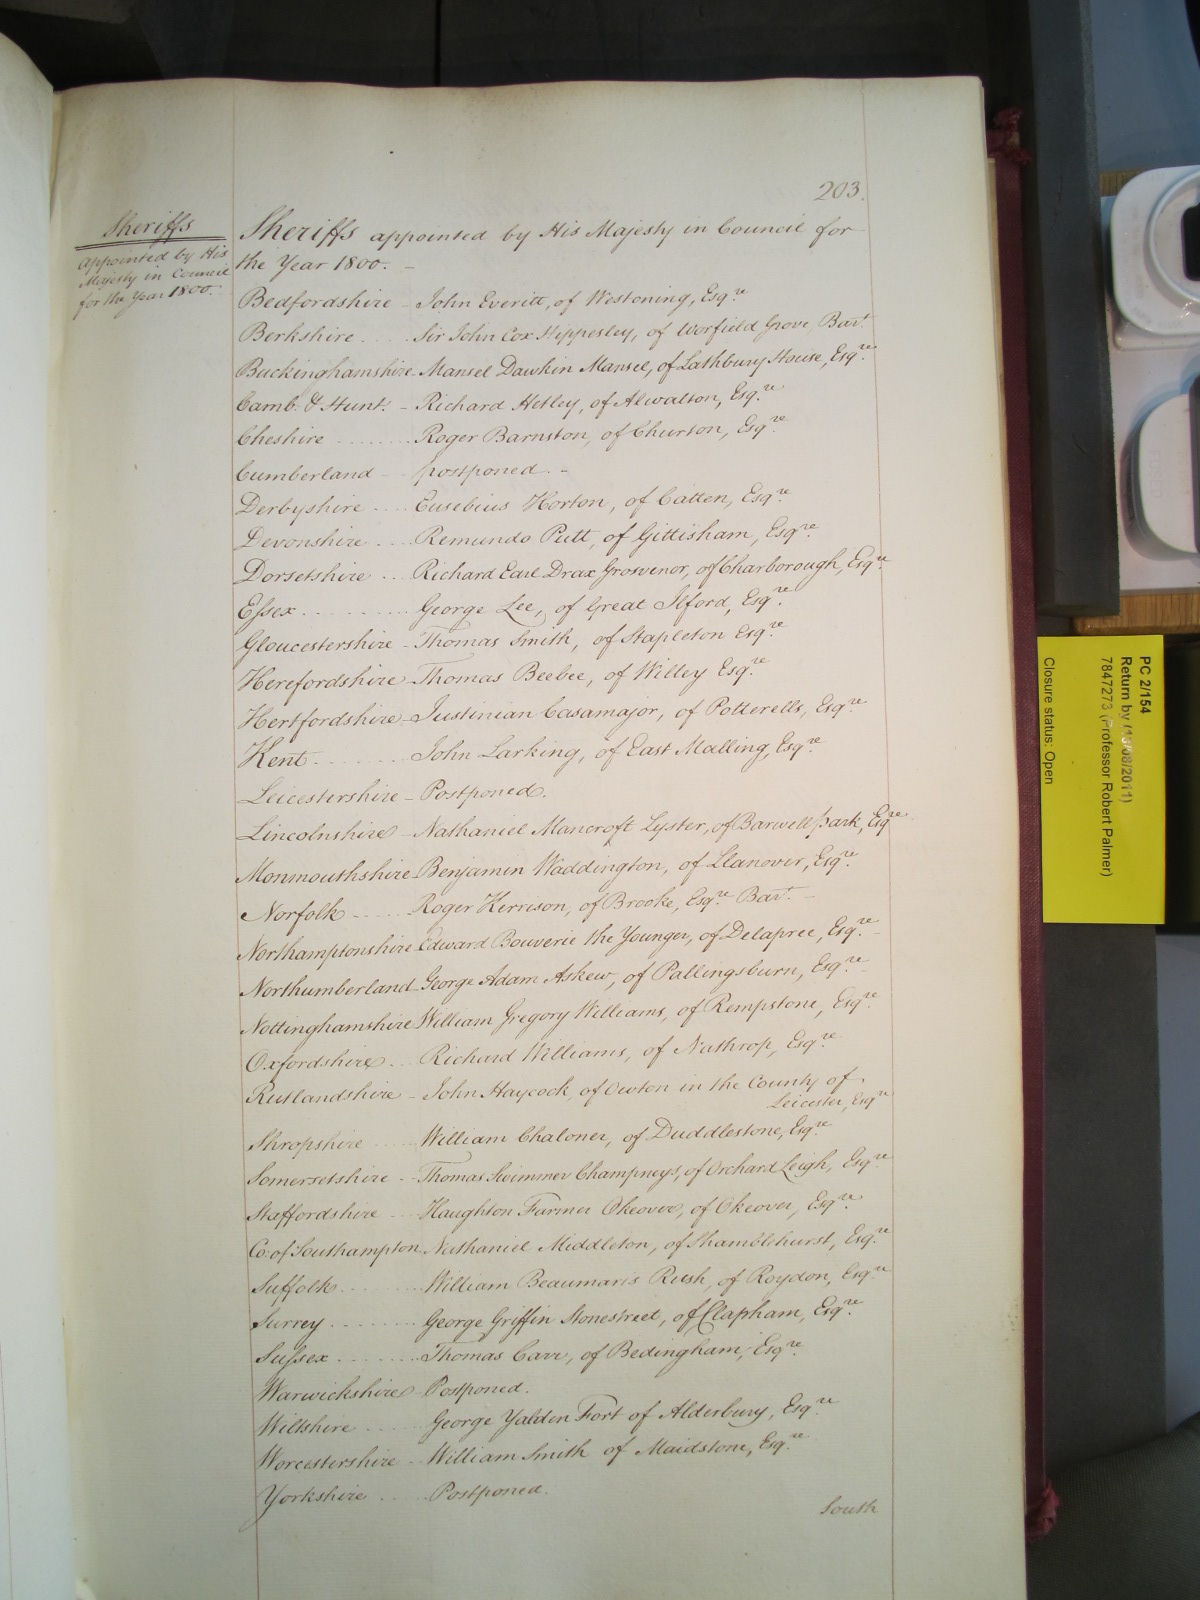 203.
Sheriffs
appointed by His
Majesty in Council
for the Year 1800.
Sheriffs appointed by His Majesty in Council for
the Year 1800. -
Bedfordshire - John Everitt, of Westoning, Esqre
Berkshire .... Sir John Cox Hippesley, of Worfield Grove, Bart.
Buckinghamshire - Mansel Dawkin Mansel, of Lathbury House, Esqre
Camb. & Hunt. - Richard Hetley, of Alwalton, Esqre
Cheshire ........ Roger Barnston, of Churton, Esqre
Cumberland -- postponed. -
Derbyshire .... Eusebius Horton, of Catten, Esqre
Devonshire .... Remundo Putt, of Gittisham, Esqre
Dorsetshire ... Richard Earl Drax Grosvenor, of Charborough, Esqre
Essex .......... George Lee, of Great Ilford, Esqre
Gloucestershire - Thomas Smith, of Stapleton Esqre
Herefordshire - Thomas Beebee, of Willey Esqre
Hertfordshire - Justinian Casamajor, of Potterells, Esqre
Kent ......... John Larking, of East Malling, Esqre
Leicestershire - Postponed.
Lincolnshire - Nathaniel Mancroft Lyster, of Barwell park, Esqre
Monmouthshire - Benjamin Waddington, of Llanover, Esqre
Norfolk ..... Roger Kerrison, of Brooke, Esqre Bart. -
Northamptonshire Edward Bouverie the Younger, of Delapree, Esqre -
Northumberland - George Adam Askew, of Pallingsburn, Esqre -
Nottinghamshire William Gregory Williams, of Rempstone, Esqre
Oxfordshire .... Richard Williams, of Nathrop, Esqre
Rutlandshire - John Haycock, of Owton in the County of
Leicester, Esqre
Shropshire ..... William Chaloner, of Duddlestone, Esqre
Somersetshire -- Thomas Swimmer Champneys, of Orchard Leigh, Esqre
Staffordshire ... Haughton Farmer Okeover, of Okeover, Esqre
Co: of Southampton. Nathaniel Middleton, of Shamblehurst, Esqre
Suffolk ........ William Beaumaris Rush, of Roydon, Esqre
Surrey ......... George Griffin Stonestreet, of Clapham, Esqre
Sussex ......... Thomas Carr, of Bedingham, Esqre
Warwickshire Postponed.
Wiltshire ...... George Yalden Fort of Alderbury, Esqre
Worcestershire - William Smith of Maidstone, Esqre
Yorkshire ..... Postponed.
South
PC 2/154
Return by (13/08/2011)
7847273 (Professor Robert Palmer)
Closure status: Open